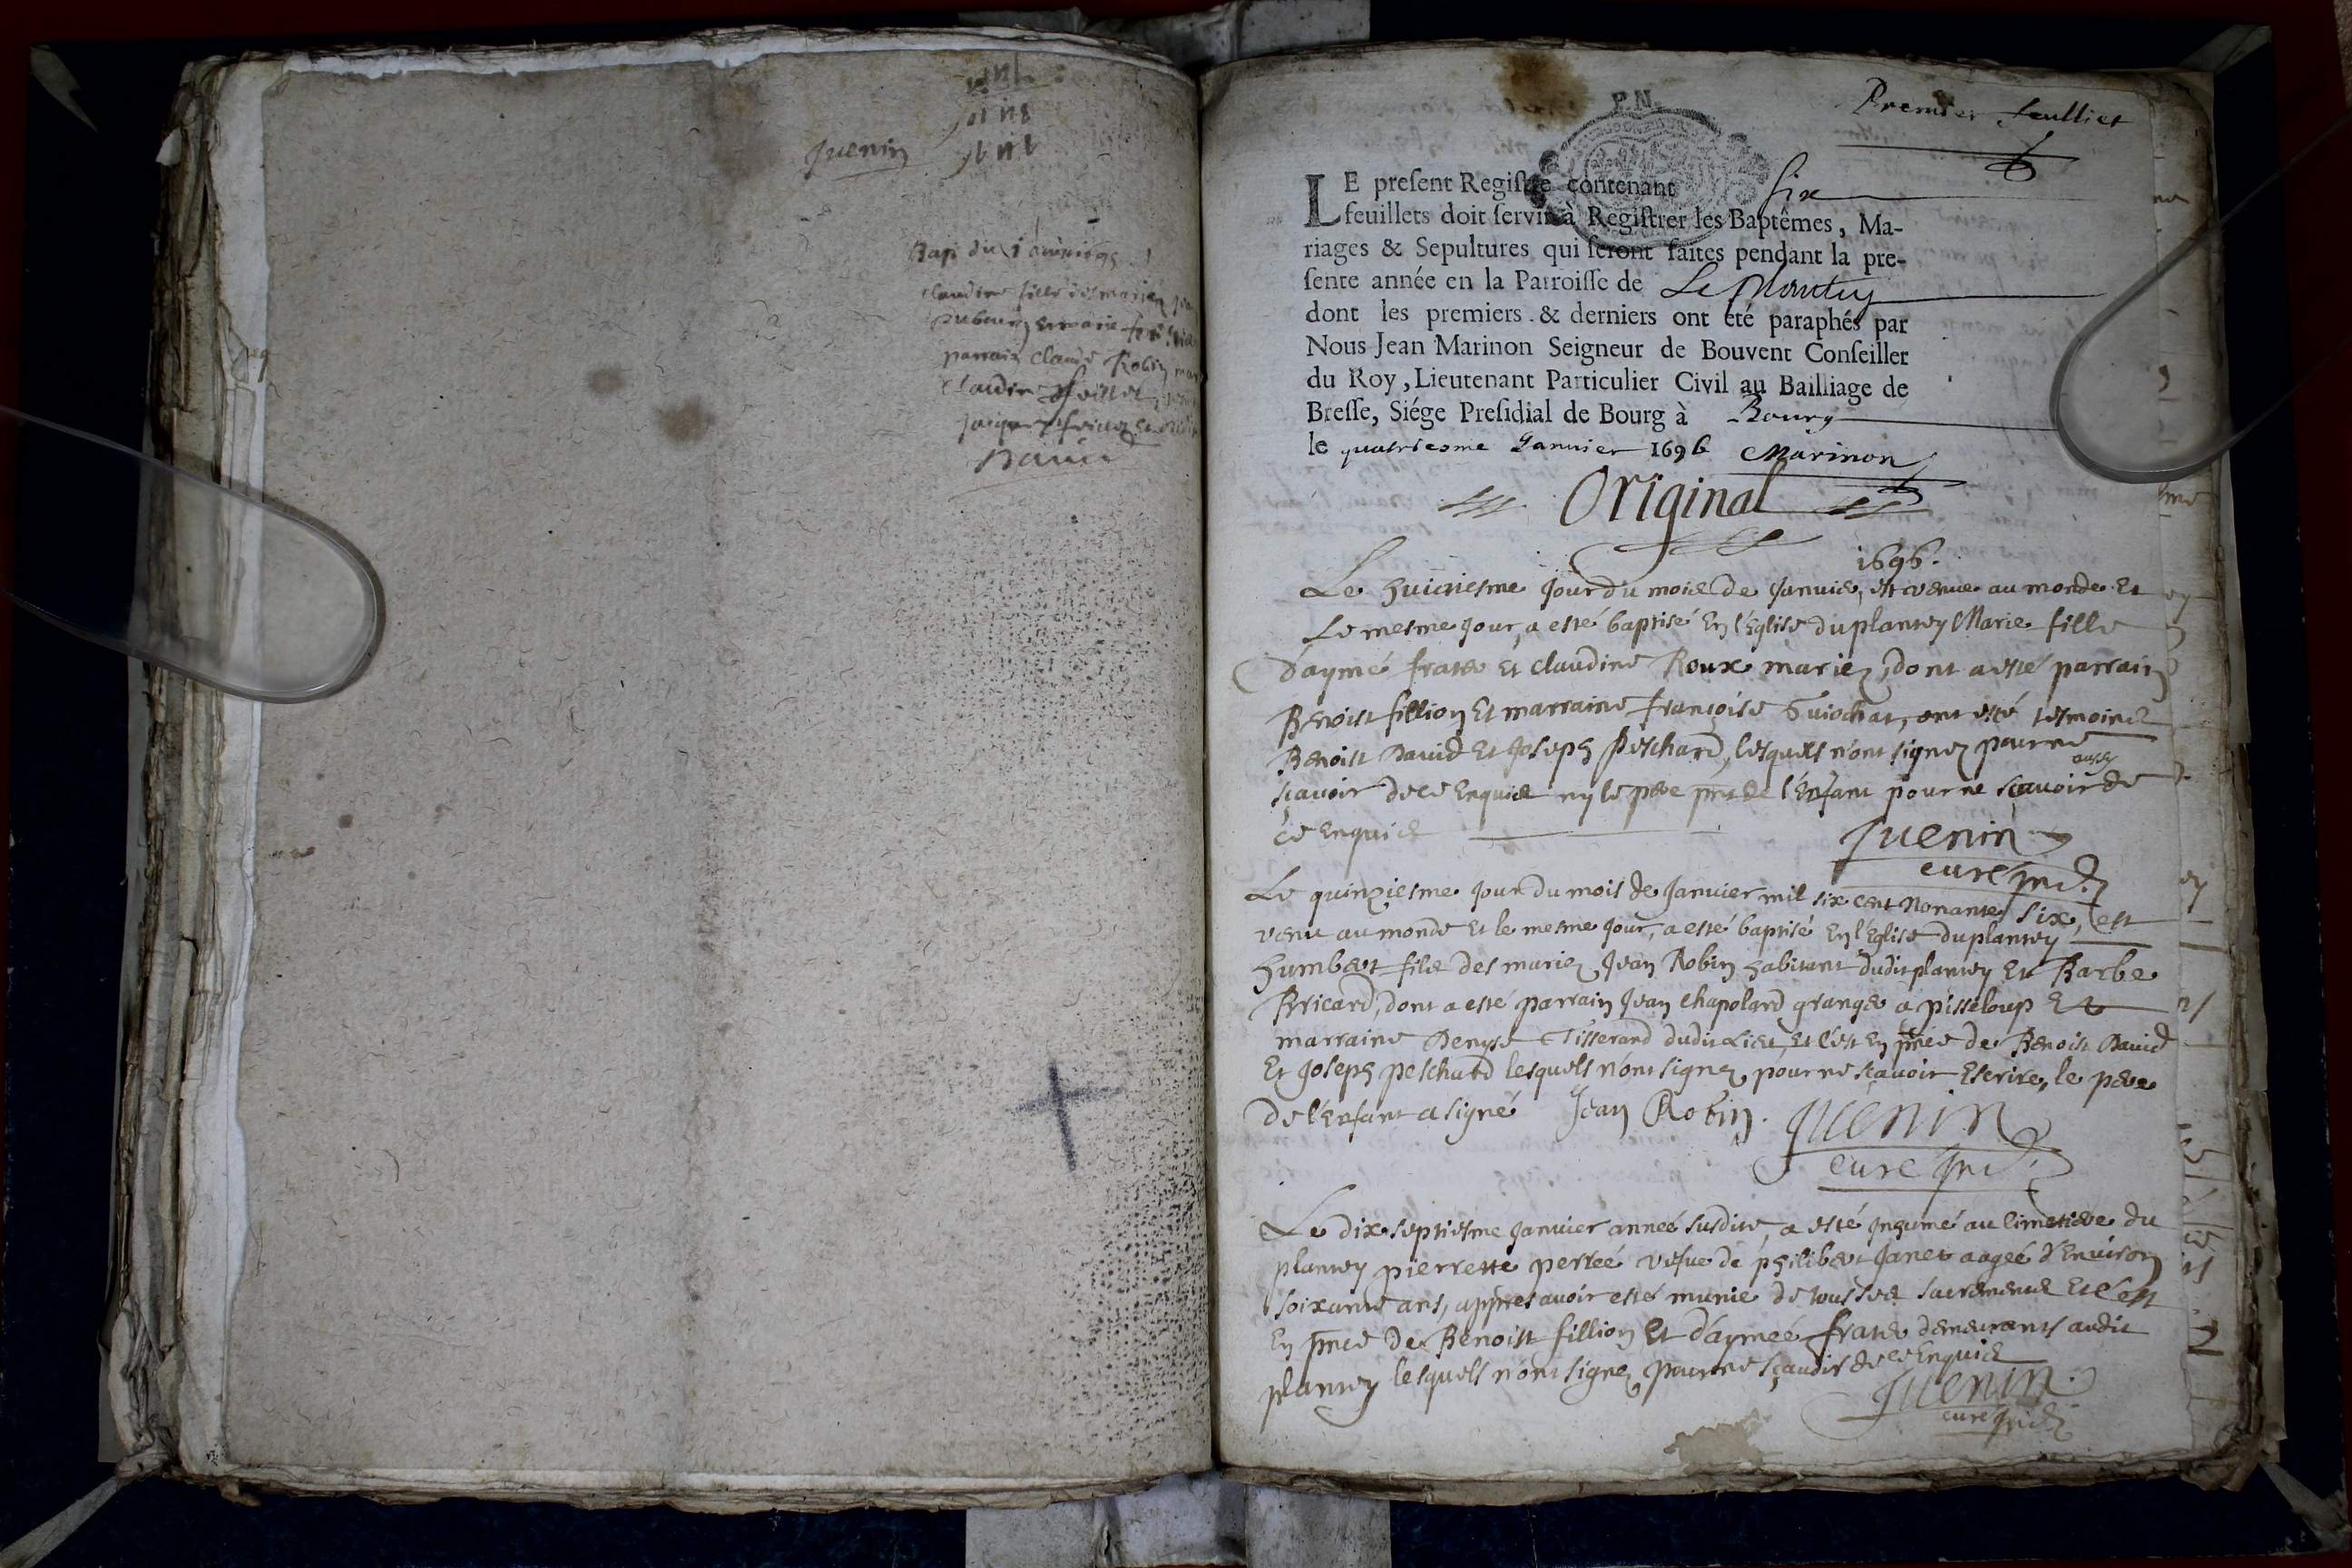 Juenin
Bap du
claudine fille des mariez
et marie
parrain claude Robin
claudine
David
Premier feulliet
P.N.
LE preſent Regiſtre contenant six
feuillets doit ſervir à Regiſtrer les Baptêmes, Ma-
riages & Sepultures qui ſeront faites pendant la pre-
ſente année en la Parroiſſe de Le Plantey
dont les premiers & derniers ont été paraphés par
Nous Jean Marinon Seigneur de Bouvent Conſeiller
du Roy, Lieutenant Particulier Civil au Bailliage de
Breſſe, Siége Preſidial de Bourg à Bourg
le quatriesme Janvier 1696 Marinon
Original
1696.
Le huictiesme Jour du mois de Janvier, est venue au monde Et
Le mesme Jour, a esté baptisé En l'Eglise du plantey Marie fille
d'aymé frater Et claudine Roux mariez, dont a esté parrain
Benoist fillion Et marraine françoise Guiochat, ont esté tesmoins
Benoist David Et Joseph peschard, lesquels n'ont signez pour ne
sçavoir de ce Enquis ny le pere pnt de l'Enfant pour ne sçavoir aussy de
ce Enquis Juenin
curé
Le quinziesme Jour du mois de Janvier mil six cent nonante six, est
venu au monde Et le mesme Jour, a esté baptisé En l'Eglise du plantey
humbert fils des mariez Jean Robin habitant dudit plantey Et Barbe
Bricard, dont a esté parrain Jean chapolard granger à pisseloup Et
marraine Denyse Tisserand dudit Lieu, Et c'est En pnce de Benoist David
Et Joseph peschard lesquels n'ont signez pour ne sçavoir Escrire, le pere
de l'Enfant a signé Jean Robin. Juenin
curé
Le dix septiesme Janvier année susdite, a esté Inhumé au cimetiere du
plantey pierrette perrée vefue de philibert Janet aagée d'Environ
soixante ans, appres avoir esté munie de tous ses sacrements Et c'est
En pnce de Benoist fillion Et d'aymé frater demeurants audit
plantey lesquels n'ont signez pour ne sçavoir de ce Enquis
Juenin
curé